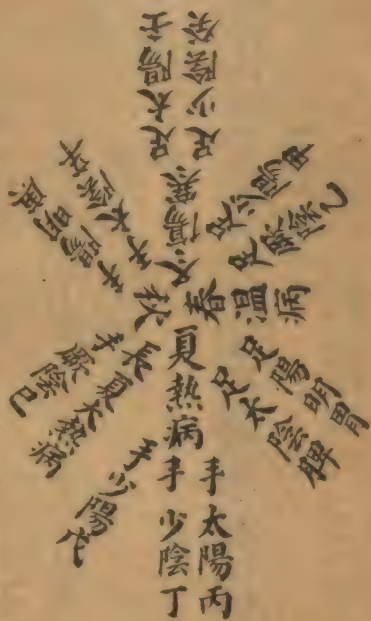 春温病
足少陽甲
足厥陰乙
足陽明胃
足太陰脾
夏熱病
手太陽丙
手少陰丁
長夏大熱病
手厥陰己
手少陽戊
秋
手陽明庚
手太陰辛
冬傷寒
足太陽壬
足少陰癸